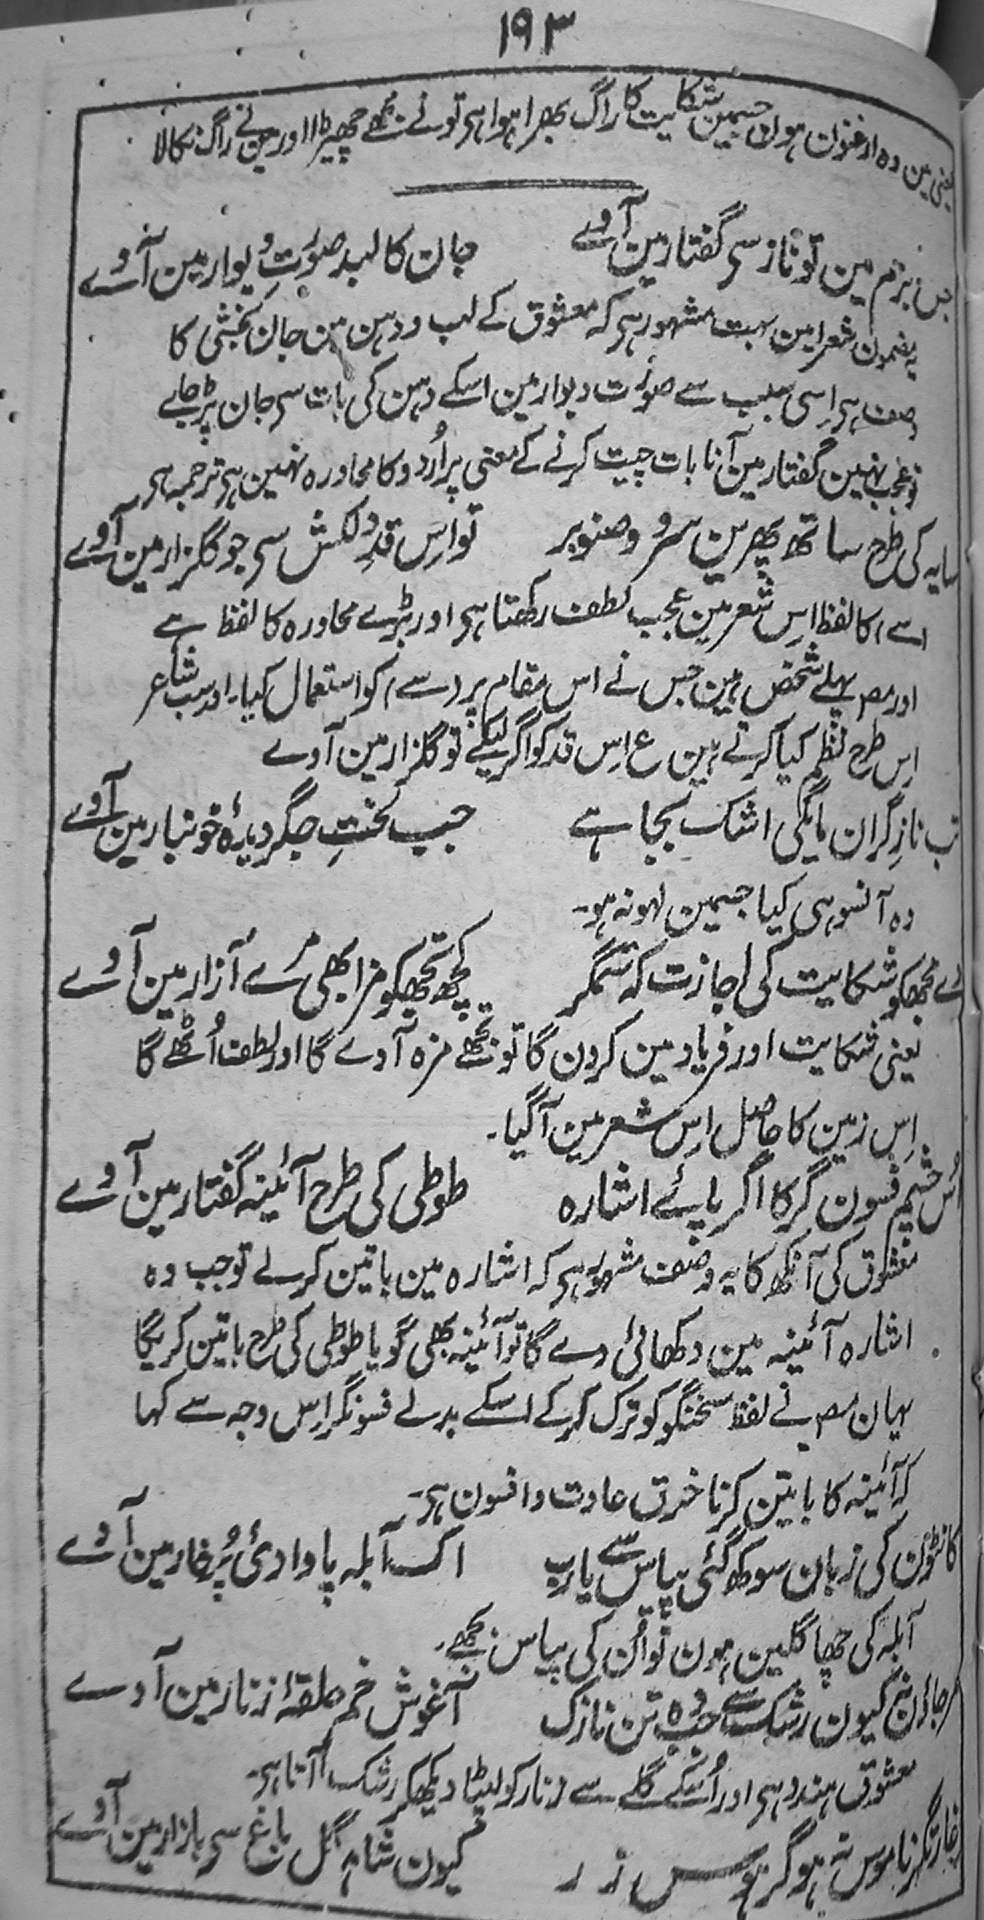 ۱۹۳
یعنی مین وہ ارغنون ہون جسمین شکایت کا راگ بھرا ہوا ہر تونے مجھے چھیڑا اور مین نے راگ نکالا
جس بزم مین تو ناز سی گفتار مین آوے جان کالبد صورت دیوار مین آوے
یہ مضمون شعرا مین بہت مشہور ہر کہ معشوق کے لب و دہن مین جان بخشی کا
وصف ہر اسی سبب سے صورت دیوار مین اسکے دہن کی بات سی جان پڑ جاے
تو عجب نہین گفتار مین آنا بات چیت کرنے کے معنی پر اُردو کا محاورہ نہین ہر ترجمہ ہر
سایہ کی طرح ساتھ پھرین سرو و صنوبر تو اِس قدِ دلکش سی جو گلزار مین آوے
(سے) کا لفظ اِس شعر مین عجب لطف رکھتا ہر اور بڑے محاورہ کا لفظ ہے
اور مصہ پہلے شخص ہین جس نے اس مقام پر (سے) کو استعمال کیا۔ اور سب شاعر
اِس طرح نظم کیا کرتے ہین ع اِس قد کو اگر لیکے تو گلزار مین آوے
تب نازِ گران مایگی اشک بجا ہے جب لختِ جگر دیدۂ خونبار مین آوے
وہ آنسو ہی کیا جسمین لہو نہ ہو۔
دے مجھکو شکایت کی اجازت کہ ستمگر کچھ تجھکو مزا بھی مرے آزار مین آوے
یعنی شکایت اور فریاد مین کرون گا تو تجھے مزہ آوے گا اور لطف اُٹھے گا
اِس زمین کا حاصل اِس شعر مین آگیا۔
اُس چشم فسون گر کا اگر پائے اشارہ طوطی کی طرح آئینہ گفتار مین آوے
معشوق کی آنکھ کا یہ وصف مشہور ہر کہ اشارہ مین باتین کرلے تو جب وہ
اشارہ آئینہ مین دکھائی دے گا تو آئینہ بھی گویا طوطی کی طرح باتین کریگا
یہان مصہ نے لفظ سخنگو کو ترک کر کے اسکے بدلے فسونگر اِس وجہ سے کہا
کہ آئینہ کا باتین کرنا خرق عادت و افسون ہر۔
کانٹون کی زبان سوکھ گئی پیاس سے یارب اک آبلہ پا وادیٔ پُرخار مین آوے
آبلہ کی چھاگلین ہون تو اُن کی پیاس بجھے۔
مرجاؤن نہ کیون رشک سے جب وہ تن نازک آغوش خم حلقۂ زنار مین آوے
معشوق ہندو ہر اور اُسکے گلے سے زنار کو لپٹا دیکھکر رشک آتا ہر۔
غارتگر ناموس نہ ہو گر ہوس زر کیون شاہد گل باغ سی بازار مین آوے